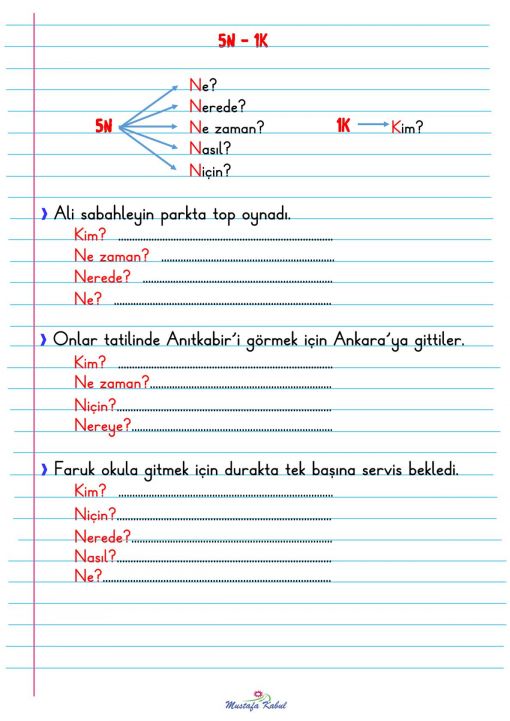 5N - 1K
5N
Ne?
Nerede?
Ne zaman?
Nasıl?
Niçin?
1K
Kim?
Ali sabahleyin parkta top oynadı.
Kim? ........................................
Ne zaman? ........................................
Nerede? ........................................
Ne? ........................................
Onlar tatilinde Anıtkabir'i görmek için Ankara'ya gittiler.
Kim? ........................................
Ne zaman?........................................
Niçin?........................................
Nereye?........................................
Faruk okula gitmek için durakta tek başına servis bekledi.
Kim? ........................................
Niçin?........................................
Nerede?........................................
Nasıl?........................................
Ne?........................................
Mustafa Kabul